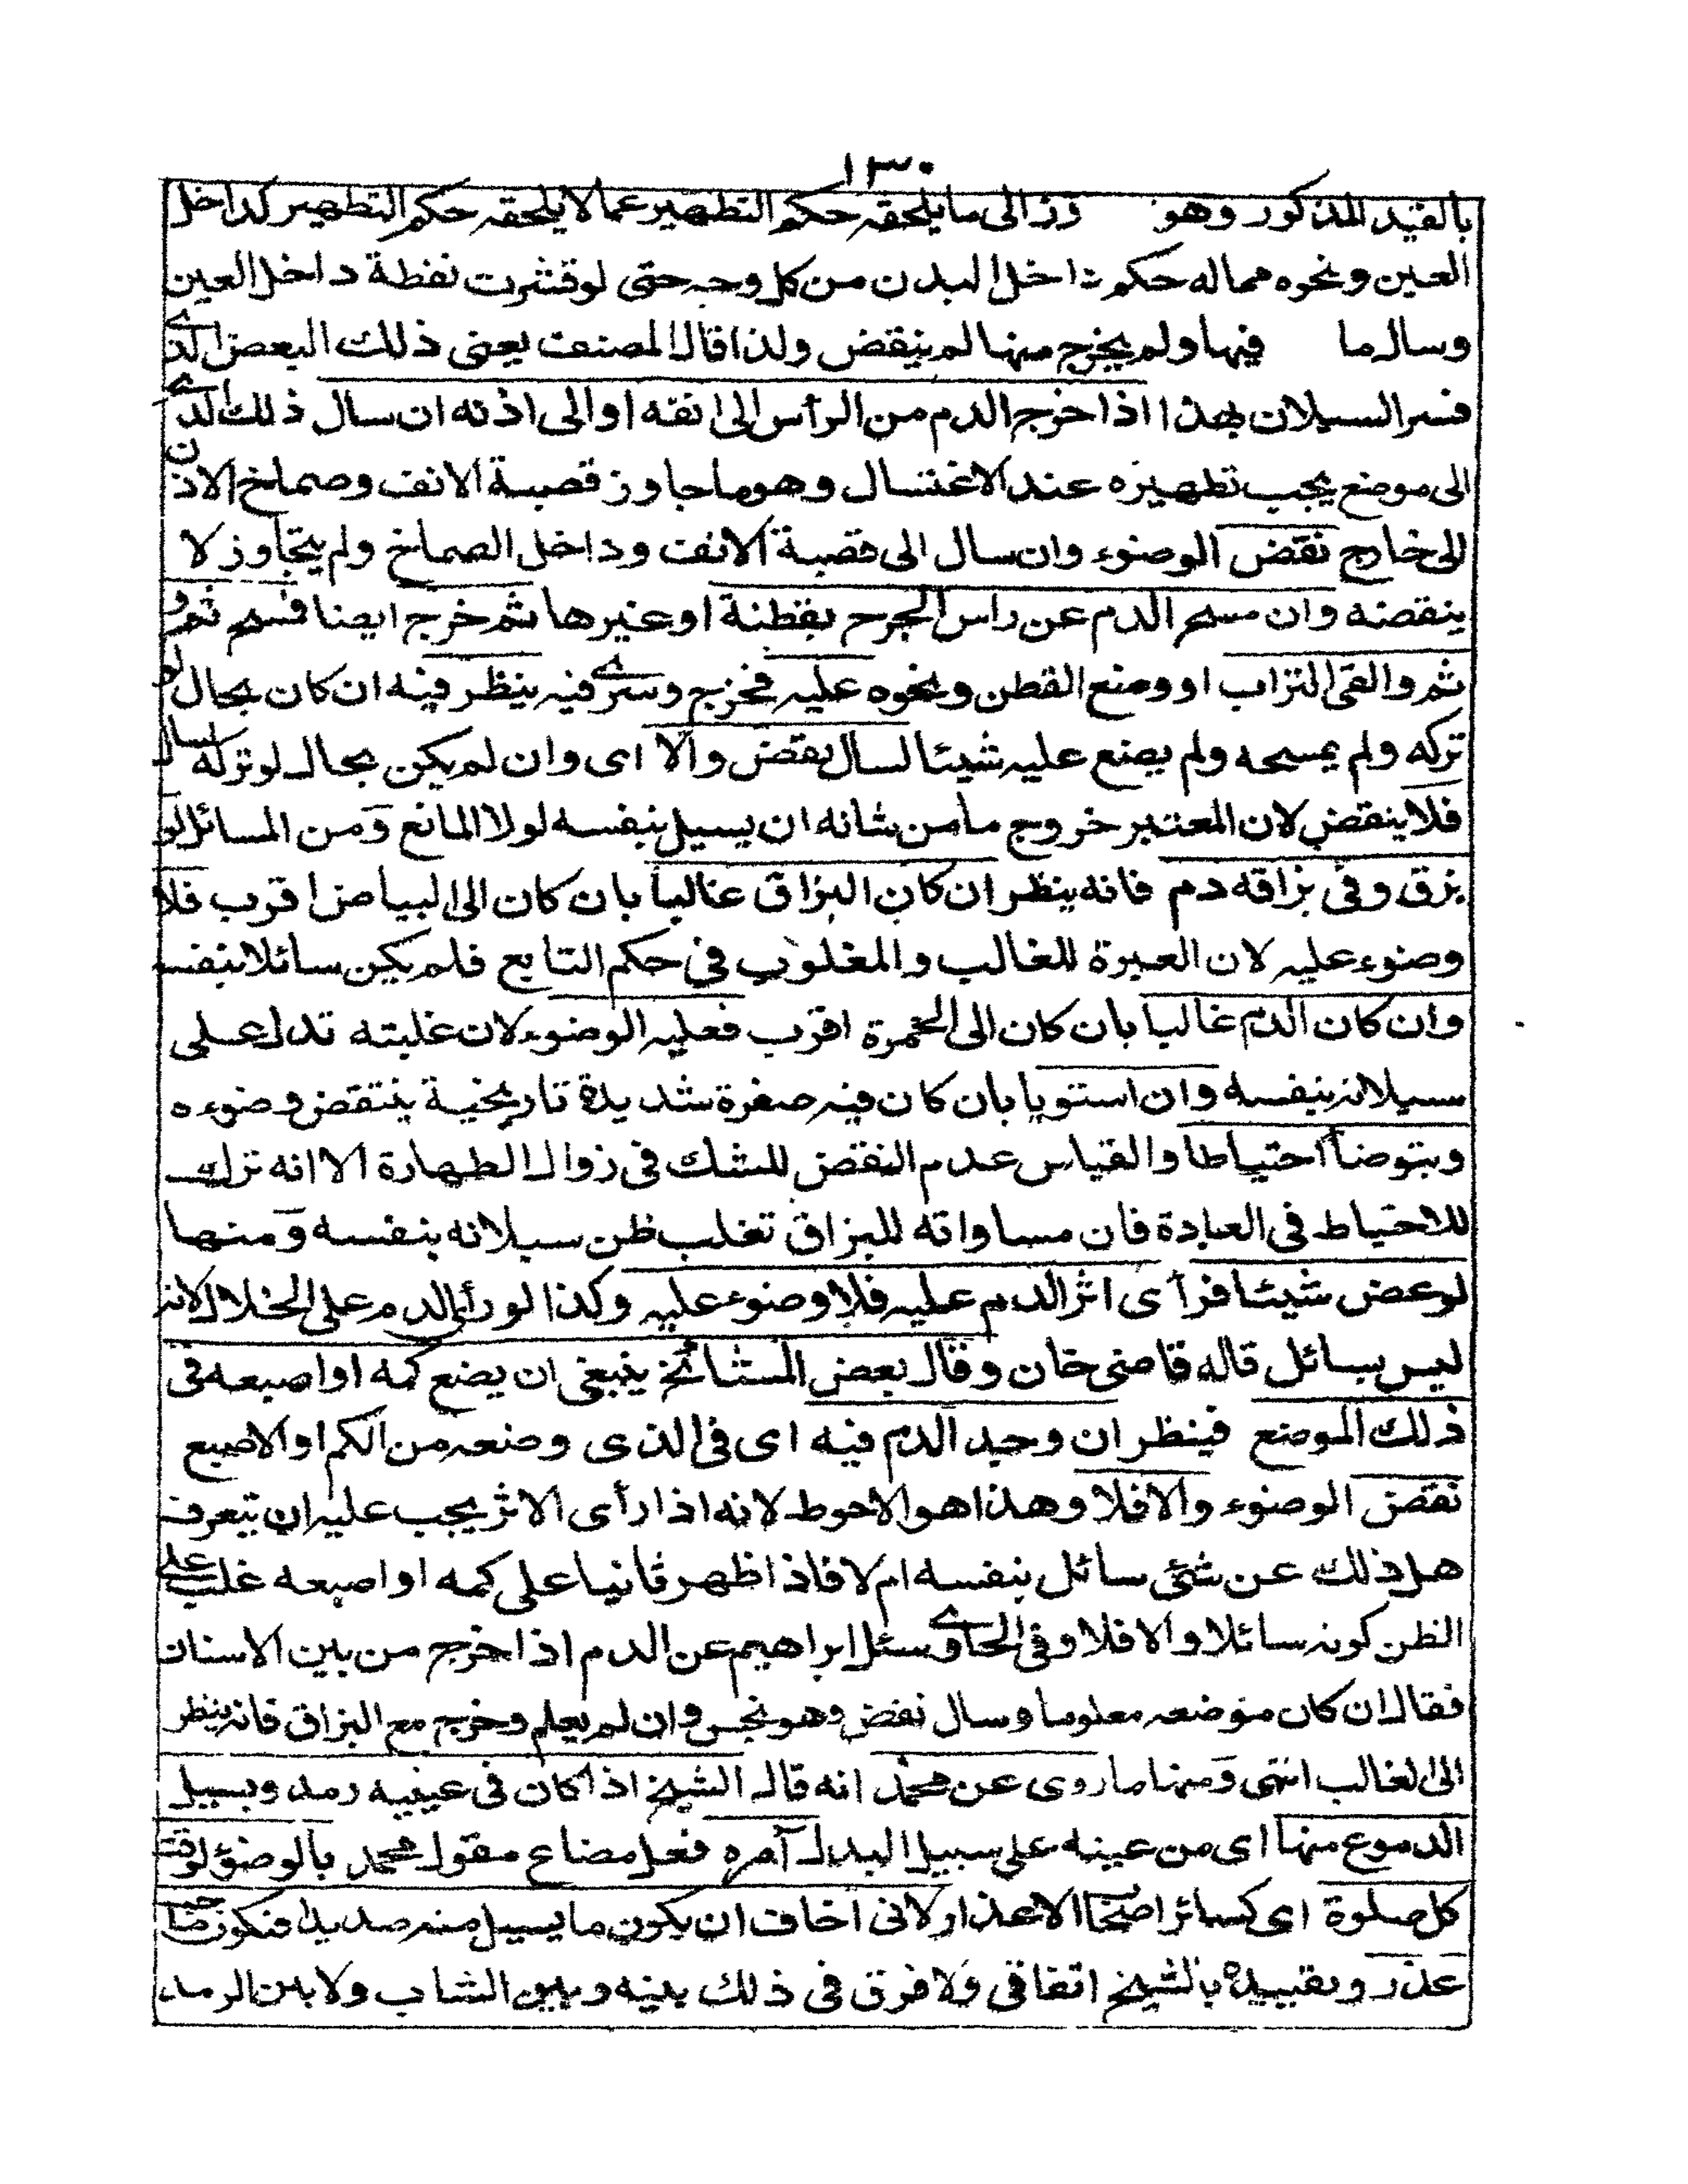 ١٣٠
بالقيد المذكور وهو وز الى ما يلحقه حكم التطهير عما لا يلحقه حكم التطهير كداخل
العين ونحوه مما له حكم داخل البدن من كل وجه حتى لو قشرت نفطة داخل العين
وسال ما فيها ولم يخرج منها لم ينقض ولذا قال المصنف يعنى ذلك البعض الذى
فسر السيلان بهذا اذا خرج الدم من الرأس الى انفه او الى اذنه ان سال ذلك الدم
الى موضع يجب تطهيره عند الاغتسال وهو ما جاوز قصبة الانف وصماخ الاذن
الى خارج نقض الوضوء وان سال الى قصبة الانف وداخل الصماخ ولم يتجاوز لا
ينقضه وان مسح الدم عن راس الجرح بقطنة او غيرها ثم خرج ايضا فمسح ثم و
ثم و القى التراب او وضع القطن ونحوه عليه فخرج وسرى فيه ينظر فيه ان كان بحال لو
تركه ولم يمسحه ولم يضع عليه شيئا لسال نقض والا اى وان لم يكن بحال لو تركه سال
فلا ينقض لان المعتبر خروج ما من شانه ان يسيل بنفسه لولا المانع ومن المسائل لو
بزق وفى بزاقه دم فانه ينظر ان كان البزاق غالبا بان كان الى البياض اقرب فلا
وضوء عليه لان العبرة للغالب والمغلوب فى حكم التابع فلم يكن سائلا بنفسه
وان كان الدم غالبا بان كان الى الحمرة اقرب فعليه الوضوء لان غلبته تدل على
سيلانه بنفسه وان استويا بان كان فيه صفرة شديدة نارنجية ينتقض وضوءه
ويتوضأ احتياطا والقياس عدم النقض للشك فى زوال الطهارة الا انه ترك
للاحتياط فى العبادة فان مساواته للبزاق تغلب ظن سيلانه بنفسه ومنها
لو عض شيئا فرأى اثر الدم عليه فلا وضوء عليه وكذا لو رأى الدم على الخلال لانه
ليس بسائل قاله قاضى خان وقال بعض المشائخ ينبغى ان يضع كمه او اصبعه فى
ذلك الموضع فينظر ان وجد الدم فيه اى فى الذى وضعه من الكم او الاصبع
نقض الوضوء والا فلا وهذا هو الاحوط لانه اذا رأى الاثر يجب عليه ان يتعرف
هل ذلك عن شئ سائل بنفسه ام لا فاذا ظهر ثانيا على كمه او اصبعه غلب على
الظن كونه سائلا والا فلا وفى الحاوى سئل ابراهيم عن الدم اذا خرج من بين الاسنان
فقال ان كان موضعه معلوما وسال نقض وهو نجس وان لم يعلم وخرج مع البزاق فانه ينظر
الى الغالب انتهى ومنها ما روى عن محمد انه قال الشيخ اذا كان فى عينيه رمد ويسيل
الدموع منها اى من عينه على سبيل البدل آمره فعل مضاع مقول محمد بالوضوء لوقت
كل صلوة اى كسائر اصحاب الاعذار لانى اخاف ان يكون ما يسيل منه صديدا فيكون صاحب
عذر وتقييده بالشيخ اتفاقى ولا فرق فى ذلك بينه وبين الشاب ولا بين الرمد